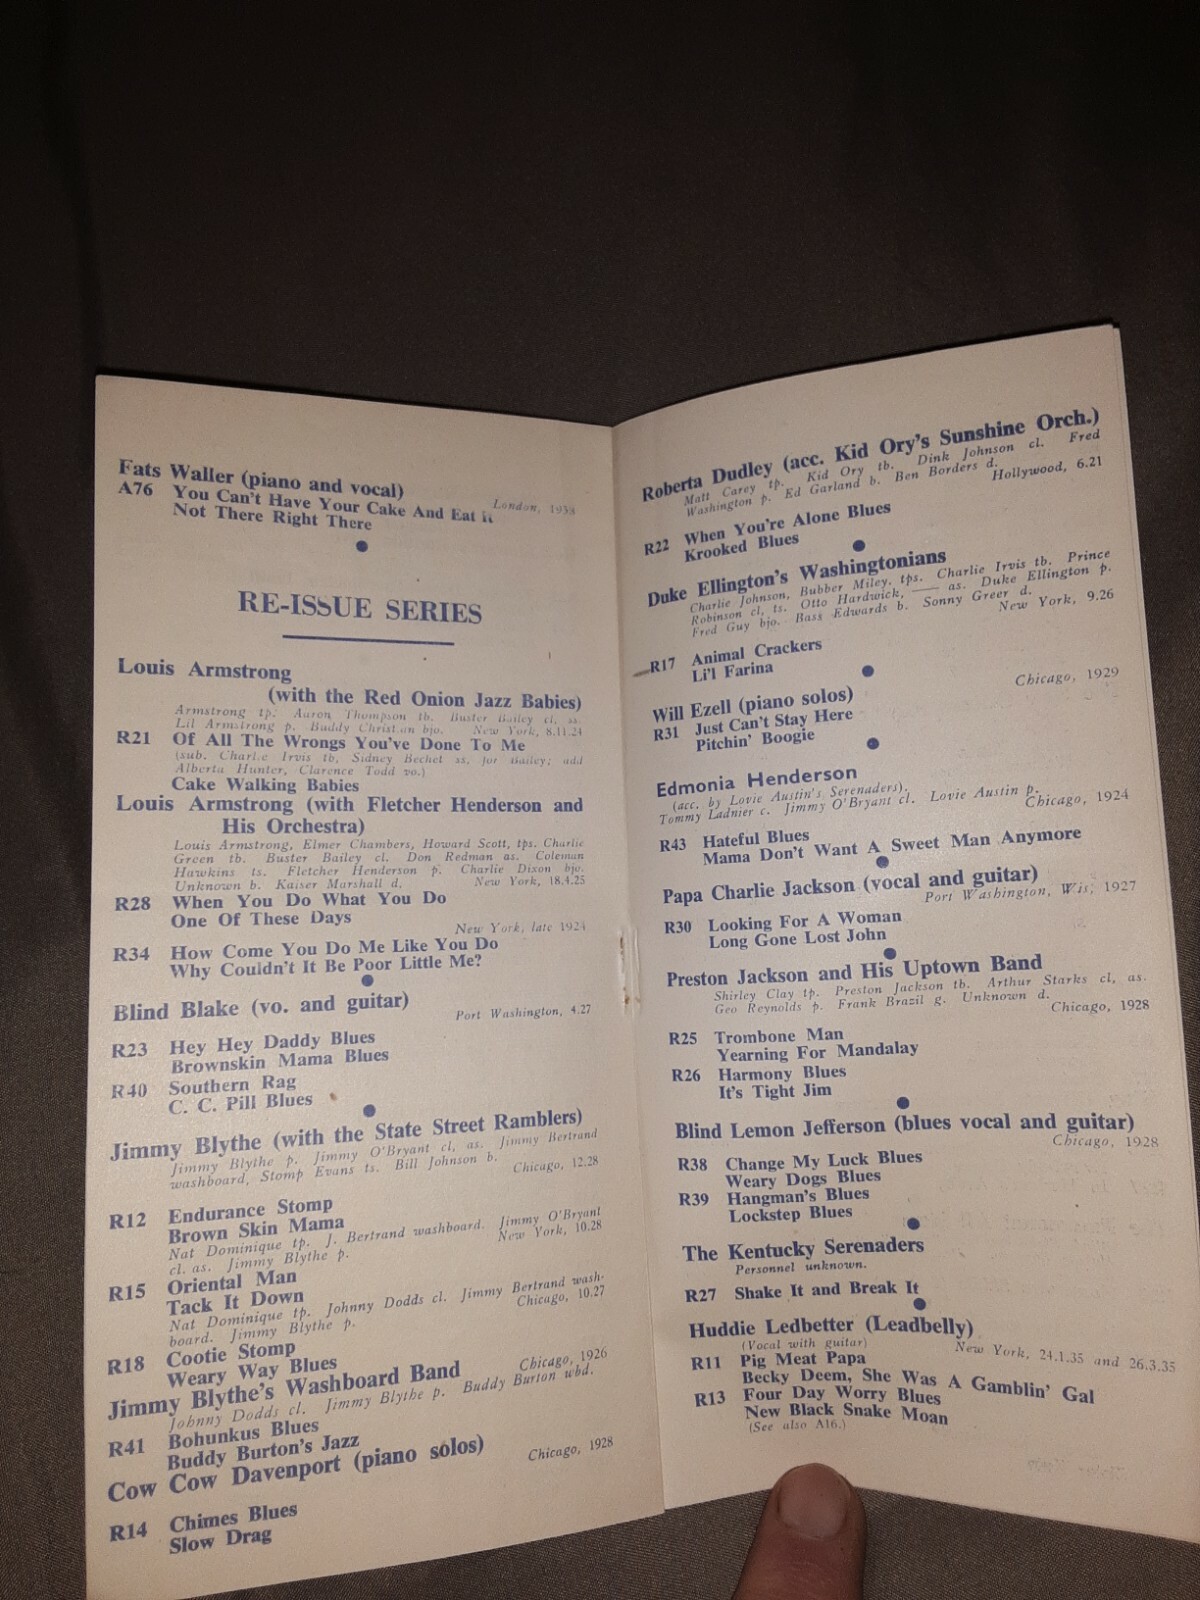 Fats Waller (piano and vocal)
London, 1938
A76 You Can't Have Your Cake And Eat It
Not There Right There
RE-ISSUE SERIES
Louis Armstrong
(with the Red Onion Jazz Babies)
Armstrong tp. Aaron Thompson tb. Buster Bailey cl, ss.
Lil Armstrong p. Buddy Christian bjo. New York, 8.11.24
R21 Of All The Wrongs You've Done To Me
(sub. Charlie Irvis tb, Sidney Bechet ss, for Bailey; add
Alberta Hunter, Clarence Todd vo.)
Cake Walking Babies
Louis Armstrong (with Fletcher Henderson and
His Orchestra)
Louis Armstrong, Elmer Chambers, Howard Scott, tps. Charlie
Green tb. Buster Bailey cl. Don Redman as. Coleman
Hawkins ts. Fletcher Henderson p. Charlie Dixon bjo.
Unknown b. Kaiser Marshall d. New York, 18.4.25
R28 When You Do What You Do
One Of These Days
New York, late 1924
R34 How Come You Do Me Like You Do
Why Couldn't It Be Poor Little Me?
Blind Blake (vo. and guitar)
Port Washington, 4.27
R23 Hey Hey Daddy Blues
Brownskin Mama Blues
R40 Southern Rag
C. C. Pill Blues
Jimmy Blythe (with the State Street Ramblers)
Jimmy Blythe p. Jimmy O'Bryant cl, as. Jimmy Bertrand
washboard, Stomp Evans ts. Bill Johnson b.
Chicago, 12.28
R12 Endurance Stomp
Brown Skin Mama
Nat Dominique tp. J. Bertrand washboard. Jimmy O'Bryant
cl. as. Jimmy Blythe p. New York, 10.28
R15 Oriental Man
Tack It Down
Nat Dominique tp. Johnny Dodds cl. Jimmy Bertrand wash-
board. Jimmy Blythe p. Chicago, 10.27
R18 Cootie Stomp
Weary Way Blues
Jimmy Blythe's Washboard Band Chicago, 1926
Johnny Dodds cl. Jimmy Blythe p. Buddy Burton wbd.
R41 Bohunkus Blues
Buddy Burton's Jazz
Cow Cow Davenport (piano solos)
Chicago, 1928
R14 Chimes Blues
Slow Drag
Roberta Dudley (acc. Kid Ory's Sunshine Orch.)
Matt Carey tp. Kid Ory tb. Dink Johnson cl. Fred
Washington p. Ed Garland b. Ben Borders d.
Hollywood, 6.21
R22 When You're Alone Blues
Krooked Blues
Duke Ellington's Washingtonians
Charlie Johnson, Bubber Miley, tps. Charlie Irvis tb. Prince
Robinson cl, ts. Otto Hardwick, — as. Duke Ellington p.
Fred Guy bjo. Bass Edwards b. Sonny Greer d.
New York, 9.26
R17 Animal Crackers
Li'l Farina
Chicago, 1929
Will Ezell (piano solos)
R31 Just Can't Stay Here
Pitchin' Boogie
Edmonia Henderson
(acc. by Lovie Austin's Serenaders).
Tommy Ladnier c. Jimmy O'Bryant cl. Lovie Austin p.
Chicago, 1924
R43 Hateful Blues
Mama Don't Want A Sweet Man Anymore
Papa Charlie Jackson (vocal and guitar)
Port Washington, Wis, 1927
R30 Looking For A Woman
Long Gone Lost John
Preston Jackson and His Uptown Band
Shirley Clay tp. Preston Jackson tb. Arthur Starks cl, as.
Geo Reynolds p. Frank Brazil g. Unknown d.
Chicago, 1928
R25 Trombone Man
Yearning For Mandalay
R26 Harmony Blues
It's Tight Jim
Blind Lemon Jefferson (blues vocal and guitar)
Chicago, 1928
R38 Change My Luck Blues
Weary Dogs Blues
R39 Hangman's Blues
Lockstep Blues
The Kentucky Serenaders
Personnel unknown.
R27 Shake It and Break It
Huddie Ledbetter (Leadbelly)
(Vocal with guitar) New York, 24.1.35 and 26.3.35
R11 Pig Meat Papa
Becky Deem, She Was A Gamblin' Gal
R13 Four Day Worry Blues
New Black Snake Moan
(See also A16.)